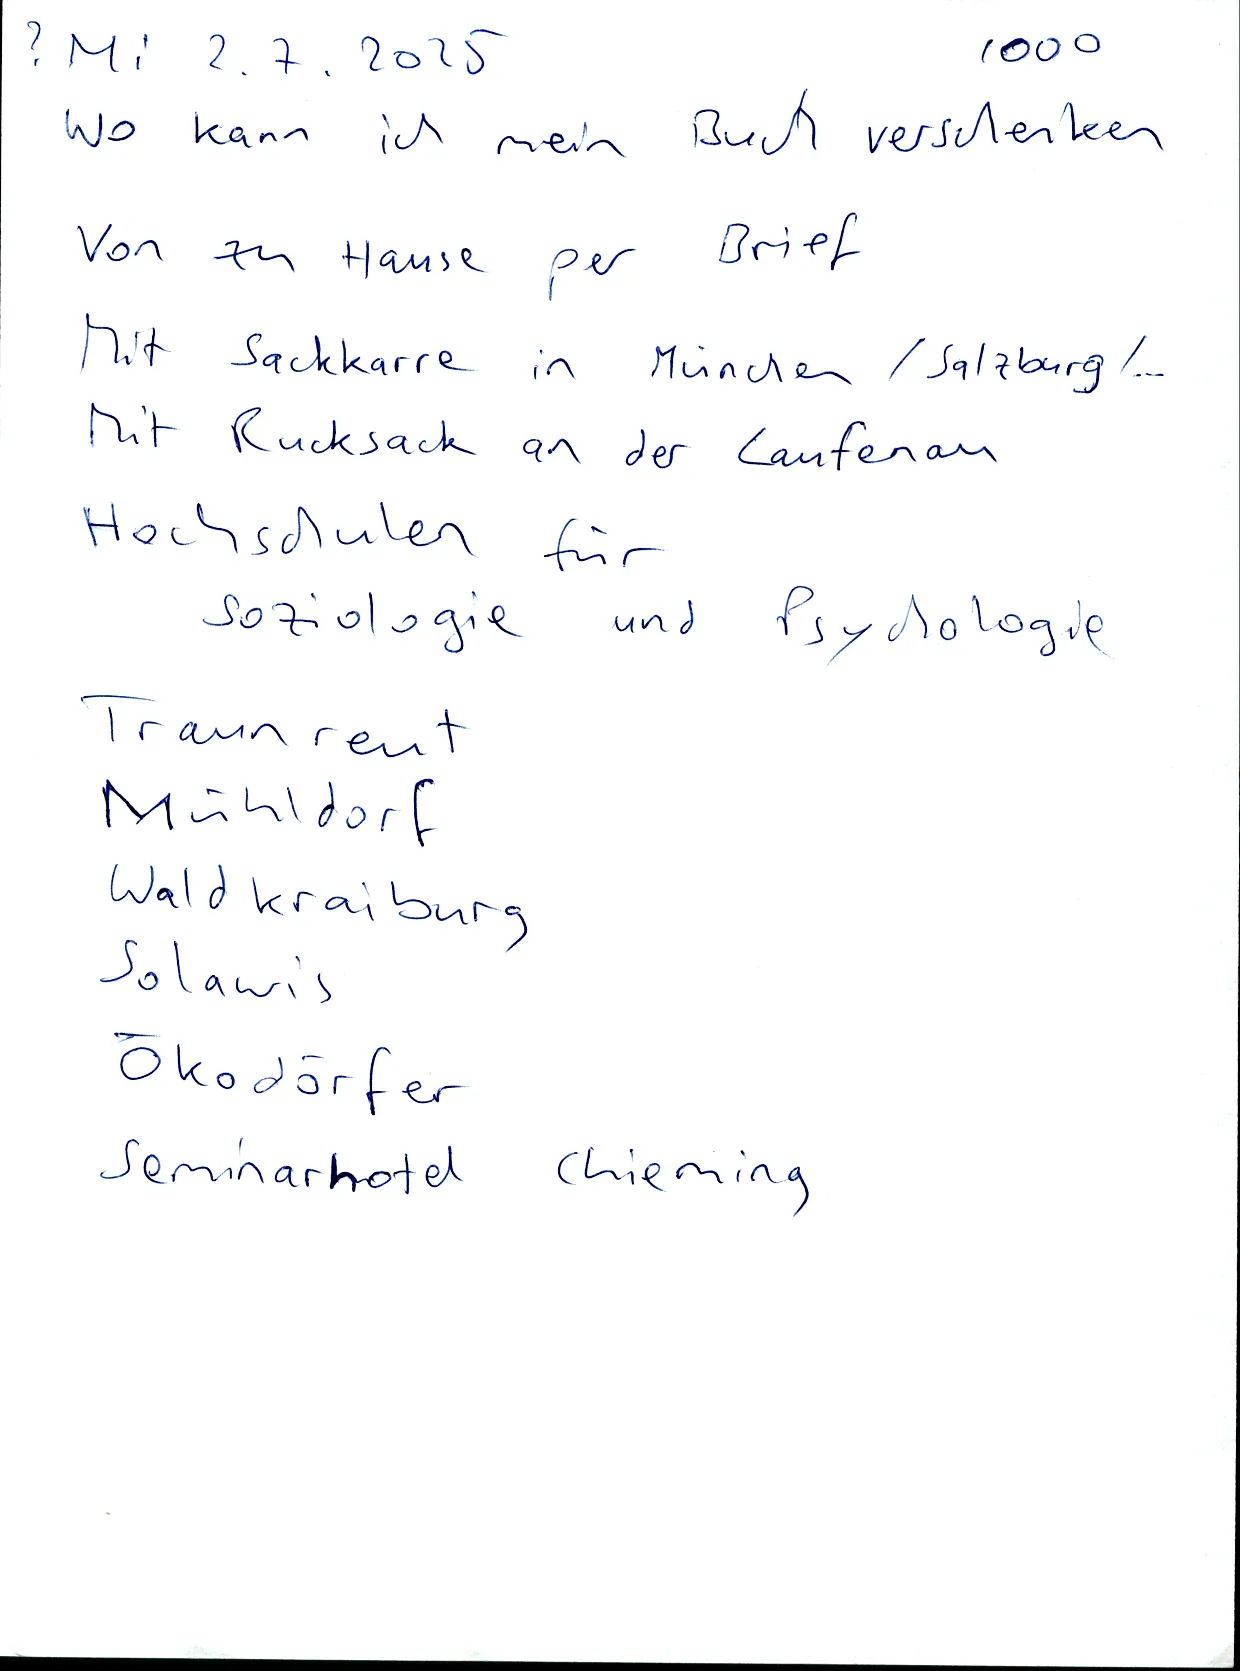 ? Mi 2.7.2025 1000
Wo kann ich mein Buch verschenken
Von zu Hause per Brief
Mit Sackkarre in München / Salzburg / ...
Mit Rucksack an der Laufenau
Hochschulen für
Soziologie und Psychologie
Traunreut
Mühldorf
Waldkraiburg
Solawis
Ökodörfer
Seminarhotel Chieming